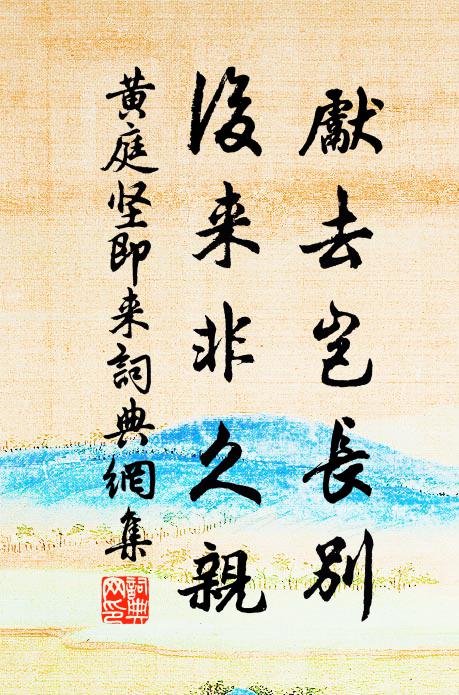 獻去岂長別
後来非久親
黄庭坚即来詞典網集
詞典
网印